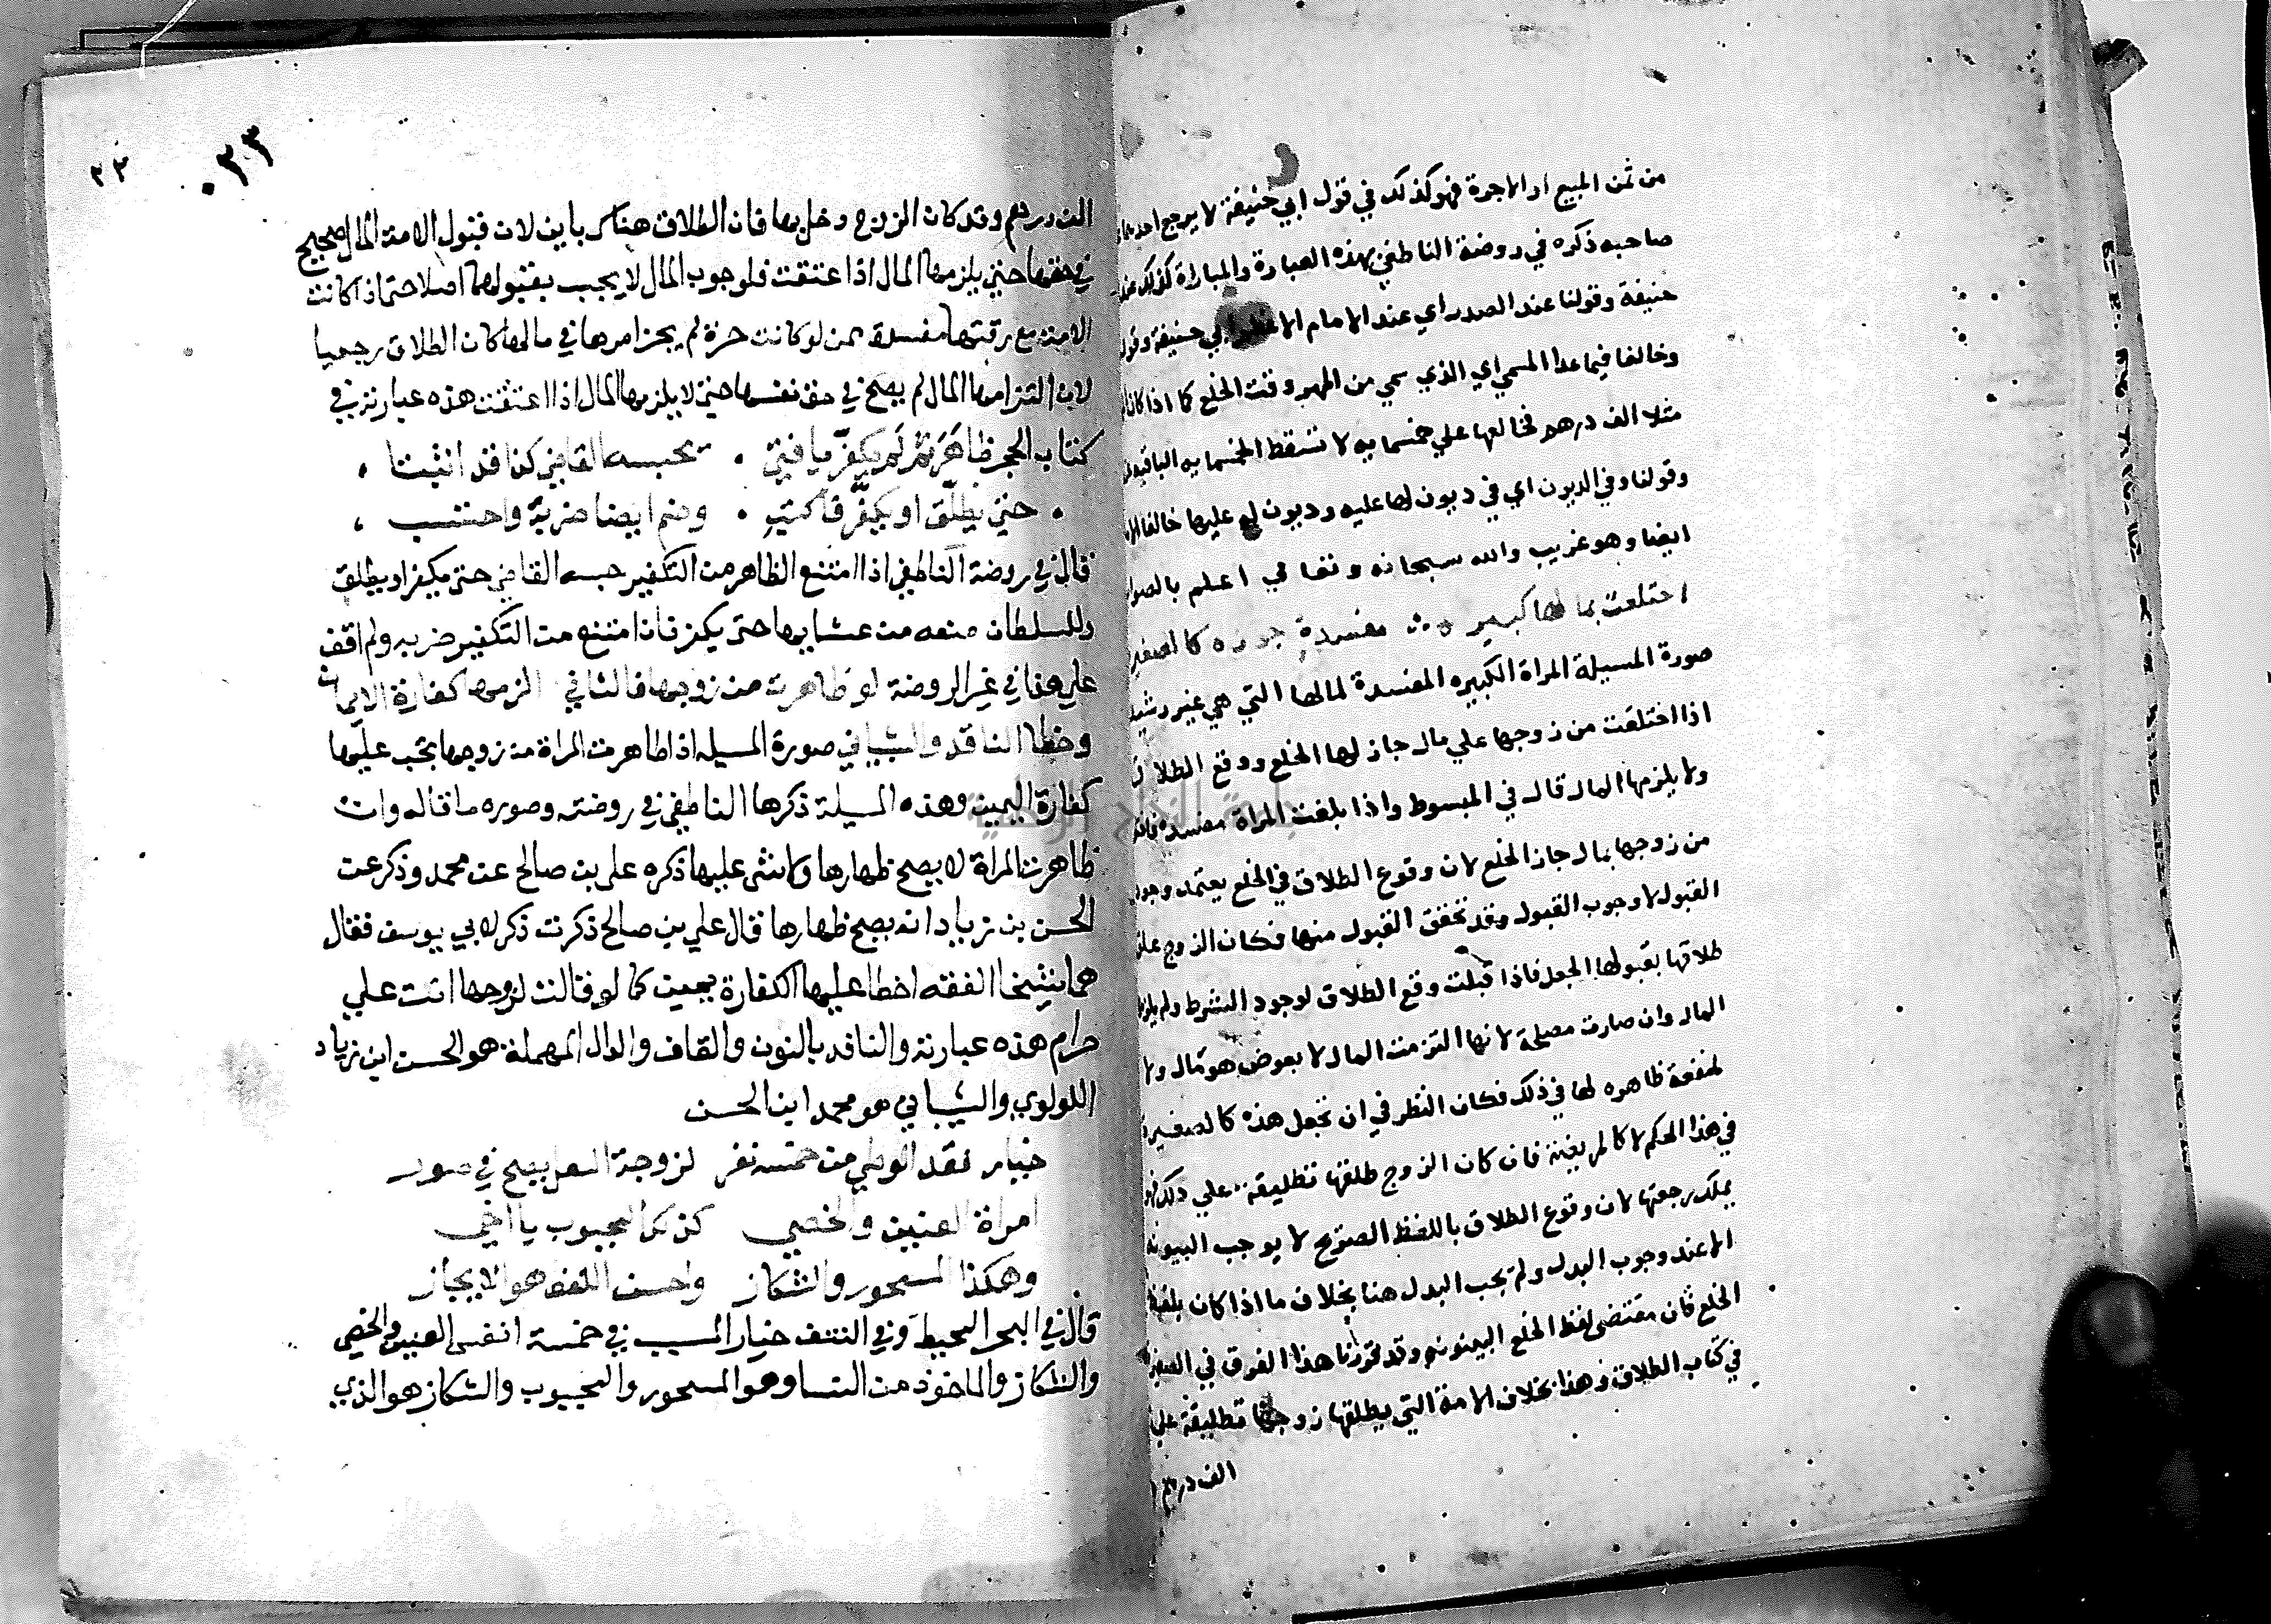 من ثمن المبيع او الاجرة فهو كذلك في قول ابي حنيفة لا يرجع احدهما
صاحبه ذكره في روضة الناطفي بهذه العبارة والمباراة كذلك عند
حنيفة وقولنا عند الصدر اي عند الامام الاعظم ابي حنيفة وقول
وخالفا فيما عدا المسمي اي الذي سمي من المهر وقت الخلع كما اذا كان
مثلا الف درهم فخالعها علي خمسمايه لا تسقط الخمسمايه الباقيه
وقولنا وفي الديون اي في ديون لها عليه وديون له عليها خالفا
ايضا وهو غريب والله سبحانه وتعالي اعلم بالصواب
اختلعت بما لها كبيره مفسدة كالصغيره
صورة المسيلة المراة الكبيره المفسدة لمالها التي هي غير رشيدة
اذا اختلعت من زوجها علي مال جاز لها الخلع ووقع الطلاق
ولا يلزمها المال قال في المبسوط واذا بلغت المراة مفسده
من زوجها بمال جاز الخلع لان وقوع الطلاق في الخلع يعتمد وجود
القبول لا وجوب القبول وقد تحقق القبول منها فكان الزوج علق
طلاقها بقبولها الجعل فاذا قبلت وقع الطلاق لوجود الشرط ولم يلزمها
المال وان صارت مصلحة لانها التزمت المال لا بعوض هو مال ولا
لمنفعة ظاهره لها في ذلك فكان النظر في ان تجعل هذه كالصغيرة
في هذا الحكم لا كالمريضة فان كان الزوج طلقها تطليقة علي ذلك فهو
يملك رجعتها لان وقوع الطلاق باللفظ الصريح لا يوجب البينونة
الا عند وجوب البدل ولم يجب البدل هنا بخلاف ما اذا كان بلفظ
الخلع فان مقتضي لفظ الخلع البينونه وقد قررنا هذا الفرق في الصغيرة
في كتاب الطلاق وهذا بخلاف الامة التي يطلقها زوجها تطليقة علي
الف درهم
٠٢٣ ٢٣
الف درهم وقد كان الزوج دخل بها فان الطلاق هناك باين لان قبول الامة المال صحيح
في حقها حتي يلزمها المال اذا عتقت فلوجوب المال لا يجب بقبولها اصلا حتي اذا كانت
الامة مع رقتها مفسدة ممن لو كانت حرة لم يجز امرها في مالها كان الطلاق رجعيا
لان التزامها المال لم يصح في حق نفسها حتي لا يلزمها المال اذا اعتقت هذه عبارته في
كتاب الحجر ظاهَرَ ثم لم يكفّر يا فتي ۰ يحبسه القاضي كذا قد اثبتا ۰
۰ حتي يطلّق او يكفّر فاكتبِ ۰ وضم ايضا ضربهٌ واحتسب ،
قال في روضة الناطفي اذا امتنع الظاهر من التكفير حبسه القاضي حتي يكفر او يطلق
وللسلطان منعه من عشايها حتي يكفر فان امتنع من التكفير ضربه ولم اقف
علي هذا في غير الروضة لو ظاهرت من زوجها فالثاني الزمها كفارة الايمان
وخطا الناقد والشيباني صورة المسيله اذا ظاهرت المراة من زوجها يجب عليها
كفارة اليمين وهذه المسيلة ذكرها الناطفي في روضته وصوره ما قاله وان
ظاهرت المراة لا يصح ظهارها ولا شي عليها ذكره علي بن صالح عن محمد وذكر عن
الحسن بن زياد انه يصح ظهارها قال علي بن صالح ذكرت ذكر لابي يوسف فقال
هما شيخا الفقه اخطا عليها الكفارة يمين كما لو قالت لزوجها انت علي
حرام هذه عبارته والناقد بالنون والقاف والدال المهملة هو الحسن ابن زياد
اللولوي والشيباني هو محمد ابن الحسن
خيار فقد الوطي من خمسه نفر لزوجة البعل يصح في صور
امراة العنين والخصي كذلك المجبوب يا اخي
وهكذا المسحور والشكاز واحسن اللفظ هو الايجاز
قال في البحر المحيط وفي النتف خيار المسبب في خمسة انفس العنين والخصي
والشكاز والماخوذ من النسا وهو المسحور والمجبوب والشكاز هو الذي